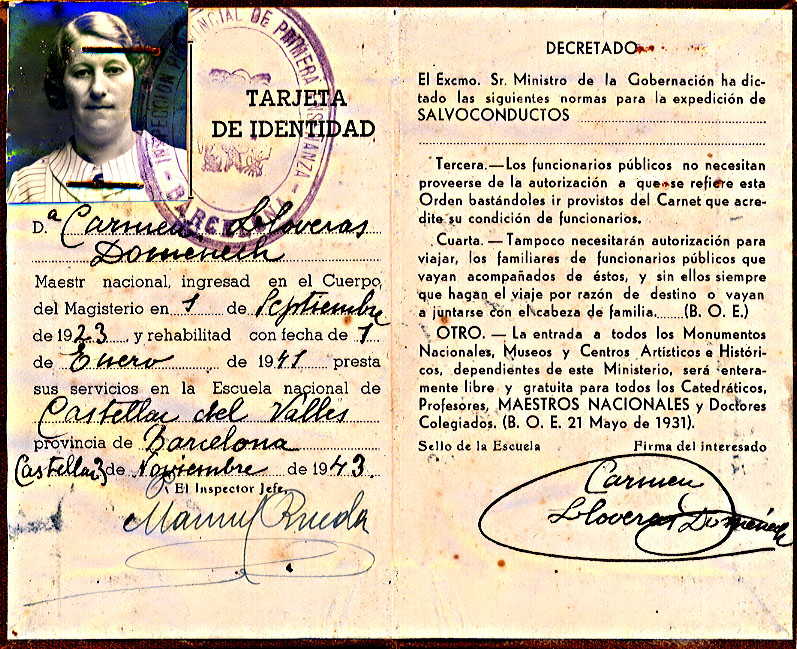 INSPECCION PROVINCIAL DE PRIMERA ENSEÑANZA - BARCELONA
TARJETA
DE IDENTIDAD
D.ª Carmen Lloveras
Domenech
Maestr nacional, ingresad en el Cuerpo
del Magisterio en 1 de Septiembre
de 1923 y rehabilitad con fecha de 1
de Enero de 1941 presta
sus servicios en la Escuela nacional de
Castellar del Vallés
provincia de Barcelona
Castellar 3 de Noviembre de 1943.
El Inspector Jefe,
Manuel Rueda
DECRETADO
El Excmo. Sr. Ministro de la Gobernación ha dic-
tado las siguientes normas para la expedición de
SALVOCONDUCTOS
Tercera.—Los funcionarios públicos no necesitan
proveerse de la autorización a que se refiere esta
Orden bastándoles ir provistos del Carnet que acre-
dite su condición de funcionarios.
Cuarta. — Tampoco necesitarán autorización para
viajar, los familiares de funcionarios públicos que
vayan acompañados de éstos, y sin ellos siempre
que hagan el viaje por razón de destino o vayan
a juntarse con el cabeza de familia......(B. O. E.)
OTRO. — La entrada a todos los Monumentos
Nacionales, Museos y Centros Artísticos e Históri-
cos, dependientes de este Ministerio, será entera-
mente libre y gratuita para todos los Catedráticos,
Profesores, MAESTROS NACIONALES y Doctores
Colegiados. (B. O. E. 21 Mayo de 1931).
Sello de la Escuela Firma del interesado
Carmen
Lloveras Domenech